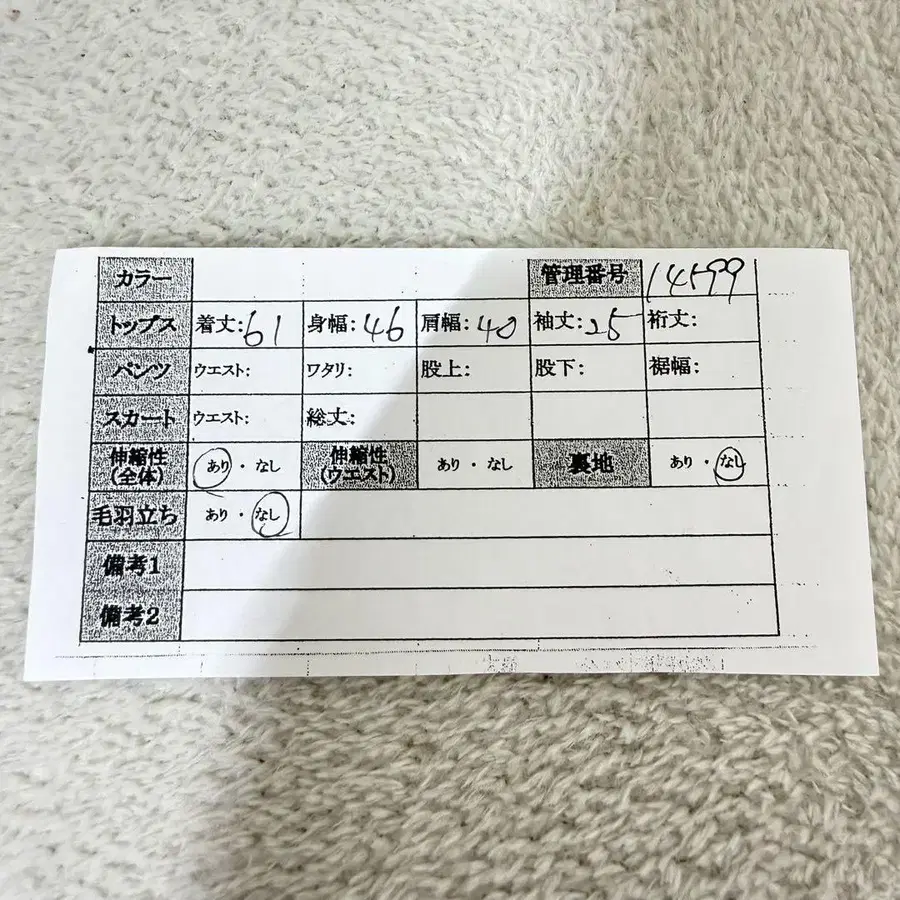 カラー 管理番号 14599
トップス 着丈:61 身幅:46 肩幅:40 袖丈:25 裄丈:
パンツ ウエスト: ワタリ: 股上: 股下: 裾幅:
スカート ウエスト: 総丈:
伸縮性(全体) あり・なし 伸縮性(ウエスト) あり・なし 裏地 あり・なし
毛羽立ち あり・なし
備考1
備考2